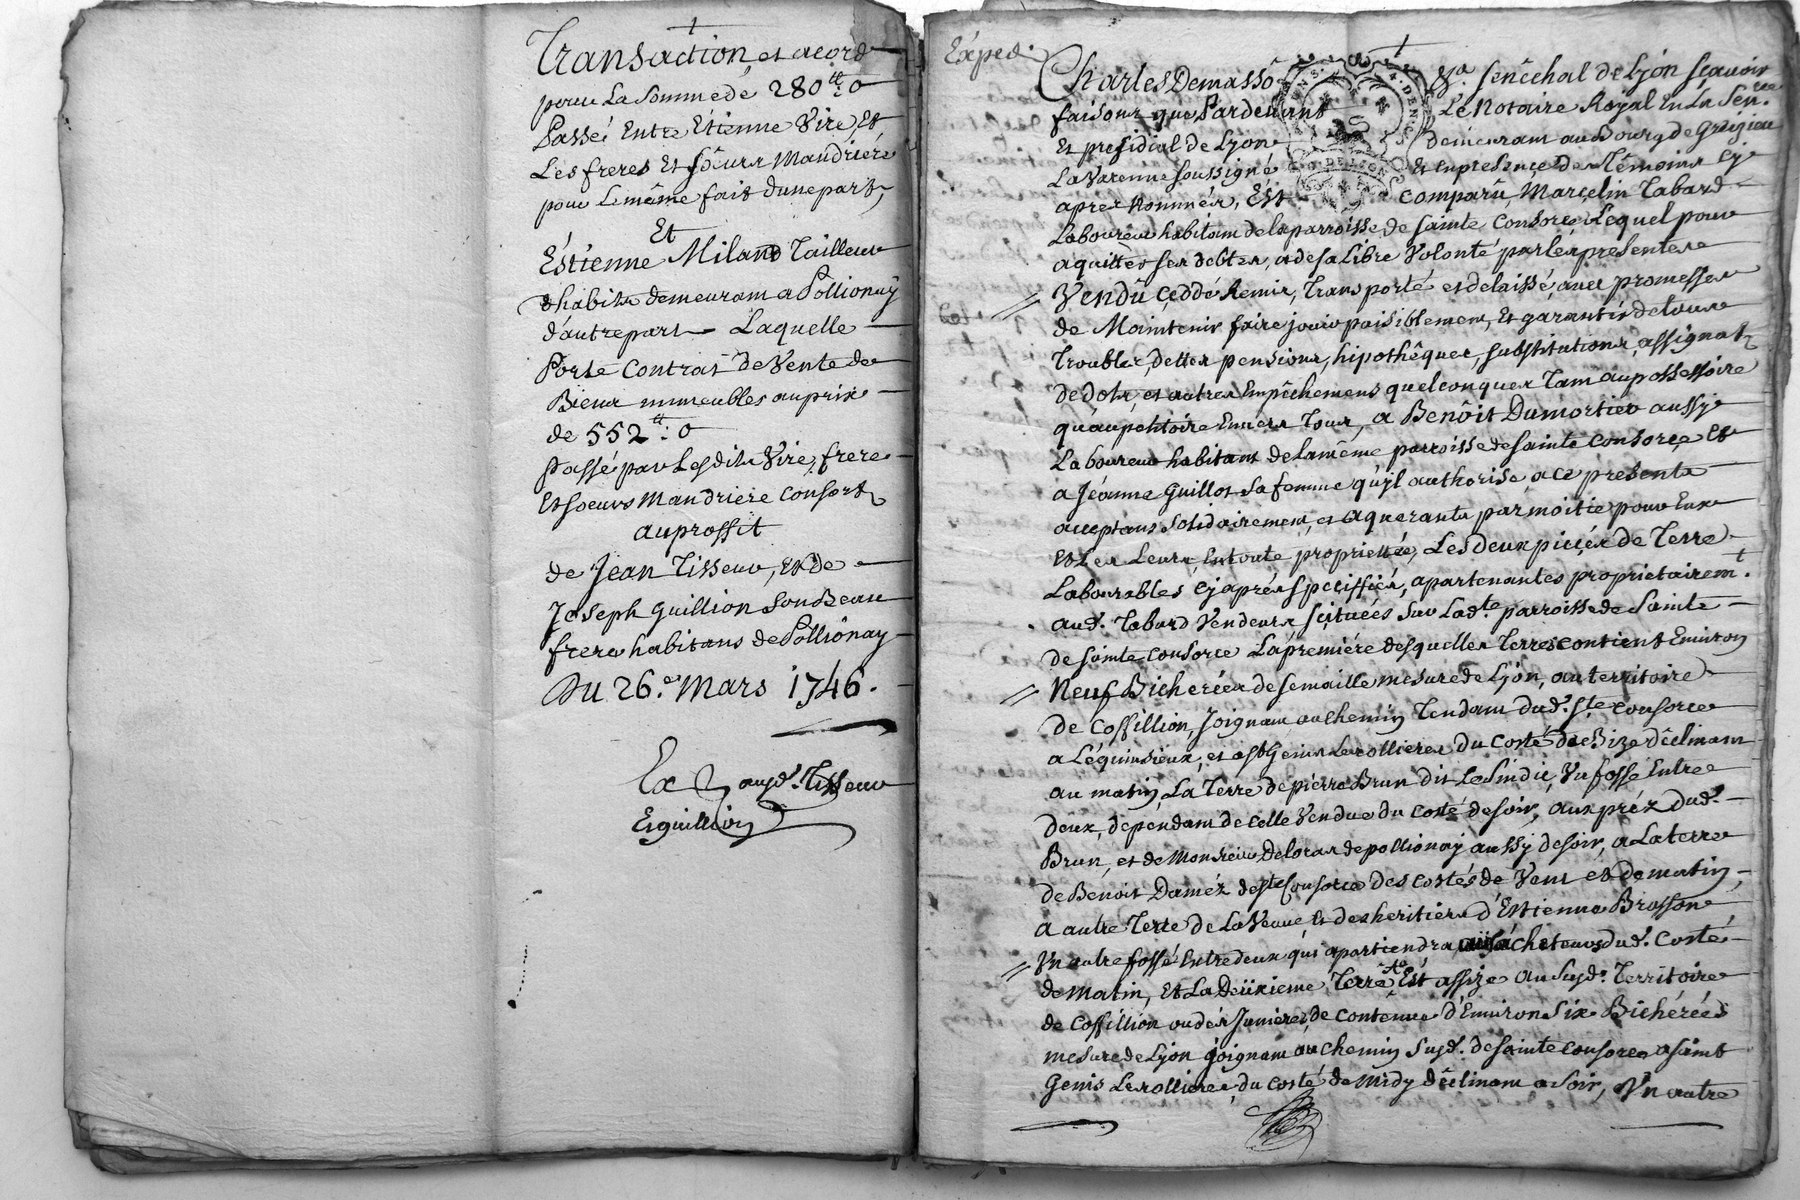 Transaction, et acord
pour La Somme de 280 ᵗᵗ: 0
Passé Entre Etienne Viré, Et
Les freres Et sœurs Mandriére
pour Le même fait d'une part,
Et
Estienne Milano Tailleur
d'habits demeurant a Pollionay
d'autre part Laquelle
Porte Contrat de Vente de
Biens immeubles au prix
de 552 ᵗᵗ: 0
Passé par Lesdits Viré, frere
Et soeurs Mandriere Consorts
au proffit
de Jean Tisseur, Et de
Joseph Guillion Son Beau
frere habitans de Pollionay
Du 26.e Mars 1746.
Ex ausd. Tisseur
Et guillion
Exped.
Charles Demasso Sénéchal de Lyon Sçavoir
faisons que Pardevant Le Notaire Royal En La Sen.cée
Et presidial de Lyon demeurant au Bourg de Grézieu
La Varenne soussigné Et En presence des Témoins Cy
apres Nommés, Est Comparû, Marcelin Tabard
Laboureur habitant de la parroisse de Sainte Consorce Lequel pour
aquitter ses debtes, a de sa Libre Volonté par les presentes
Vendû Ceddé Remis, Transporté et delaissé avec promesses
de Maintenir faire jouir paisiblement, Et garantir de tous
Troubles, dettes pensions, hipothêques, substitutions, assignat
de dots, et autres Empêchemens quelconques Tant au possessoire
qu'au petitoire Envers Tous, a Benôit Dumortier aussy
Laboureur habitant de la même parroisse de Sainte Consorce Et
a Jéanne Guillot Sa femme qu'il authorise, a ce presents
acceptans Solidairement, et aquerants par moitié pour Eux
Et Les Leurs En toute proprietée, Les deux piéces de Terre
Labourables Cy aprés Speciffiés, apartenantes proprietairem.t
aud. Tabard Vendeur Scituées Sur Lad.te parroisse de Sainte
de Sainte Consorce La premiére desquelles Terres contient Environ
Neuf Bicherées de Semaille mesure de Lyon, au territoire
de Coffillion, Joignant au chemin Tendant dud. S.te Consorce
a Léguinsieux, et a St Genis Les ollieres du Costé de Bize déclinant
au matin, La Terre de pierre Brun dit Le Sindic, Un fossé Entre
deux, dependant de celle Vendue du Costé de Soir, aux préz dud.
Brun, et de Monsieur Deloras de pollionay aussy de soir, a La terre
de Benoit Daméz de Ste Consorce des costés de Vent et de matin,
a autre Terre de La Veuve Et des heritiers d'Estienne Brossone
Un autre fossé Entre deux qui apartiendra aux acheteurs dud. Costé
de matin, Et La Deuxieme Terre Est assize au Susd. Territoire
de Coffillion ou des Junieres, de Contenue d'Environ Six Bichérées
mesure de Lyon joignant au chemin Susd. de Sainte Consorce a Saint
Genis Les ollieres, du costé de midy déclinant a Soir, Un autre